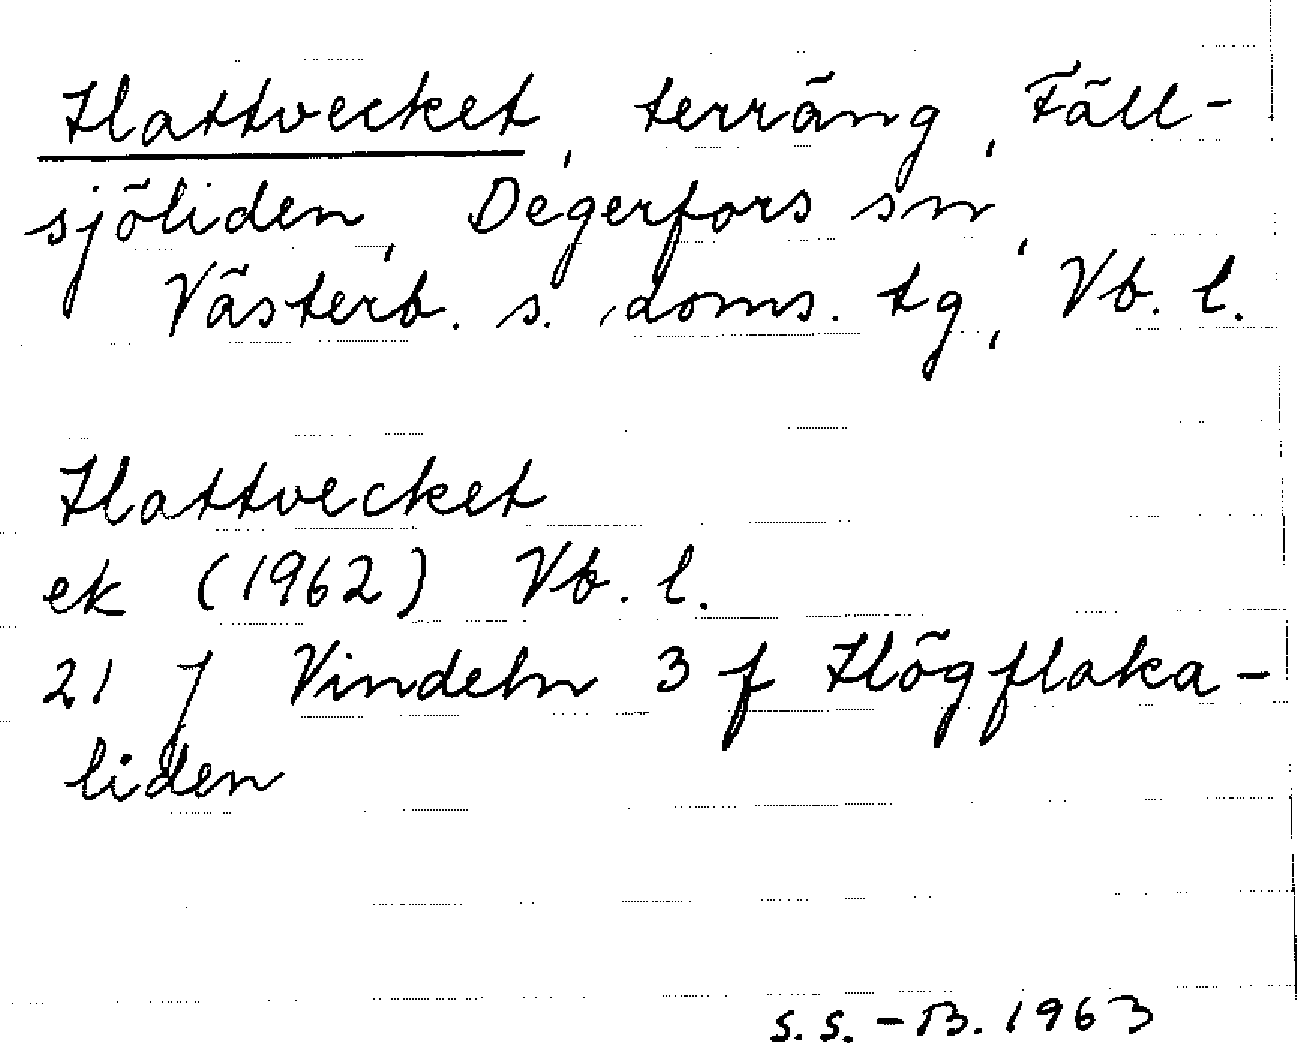 Hattvecket, terräng, Fäll-
sjöliden, Degerfors sn,
Västerb. s. doms. tg, Vb. l.
Hattvecket
ek (1962) Vb. l.
21 J Vindeln 3 f Högflaka-
liden
S.S.-B. 1963